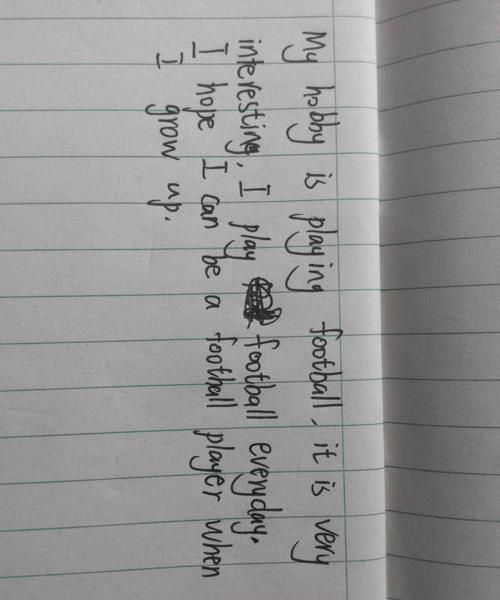 My hobby is playing football, it is very
interesting, I play football everyday.
I hope I can be a football player when
I grow up.